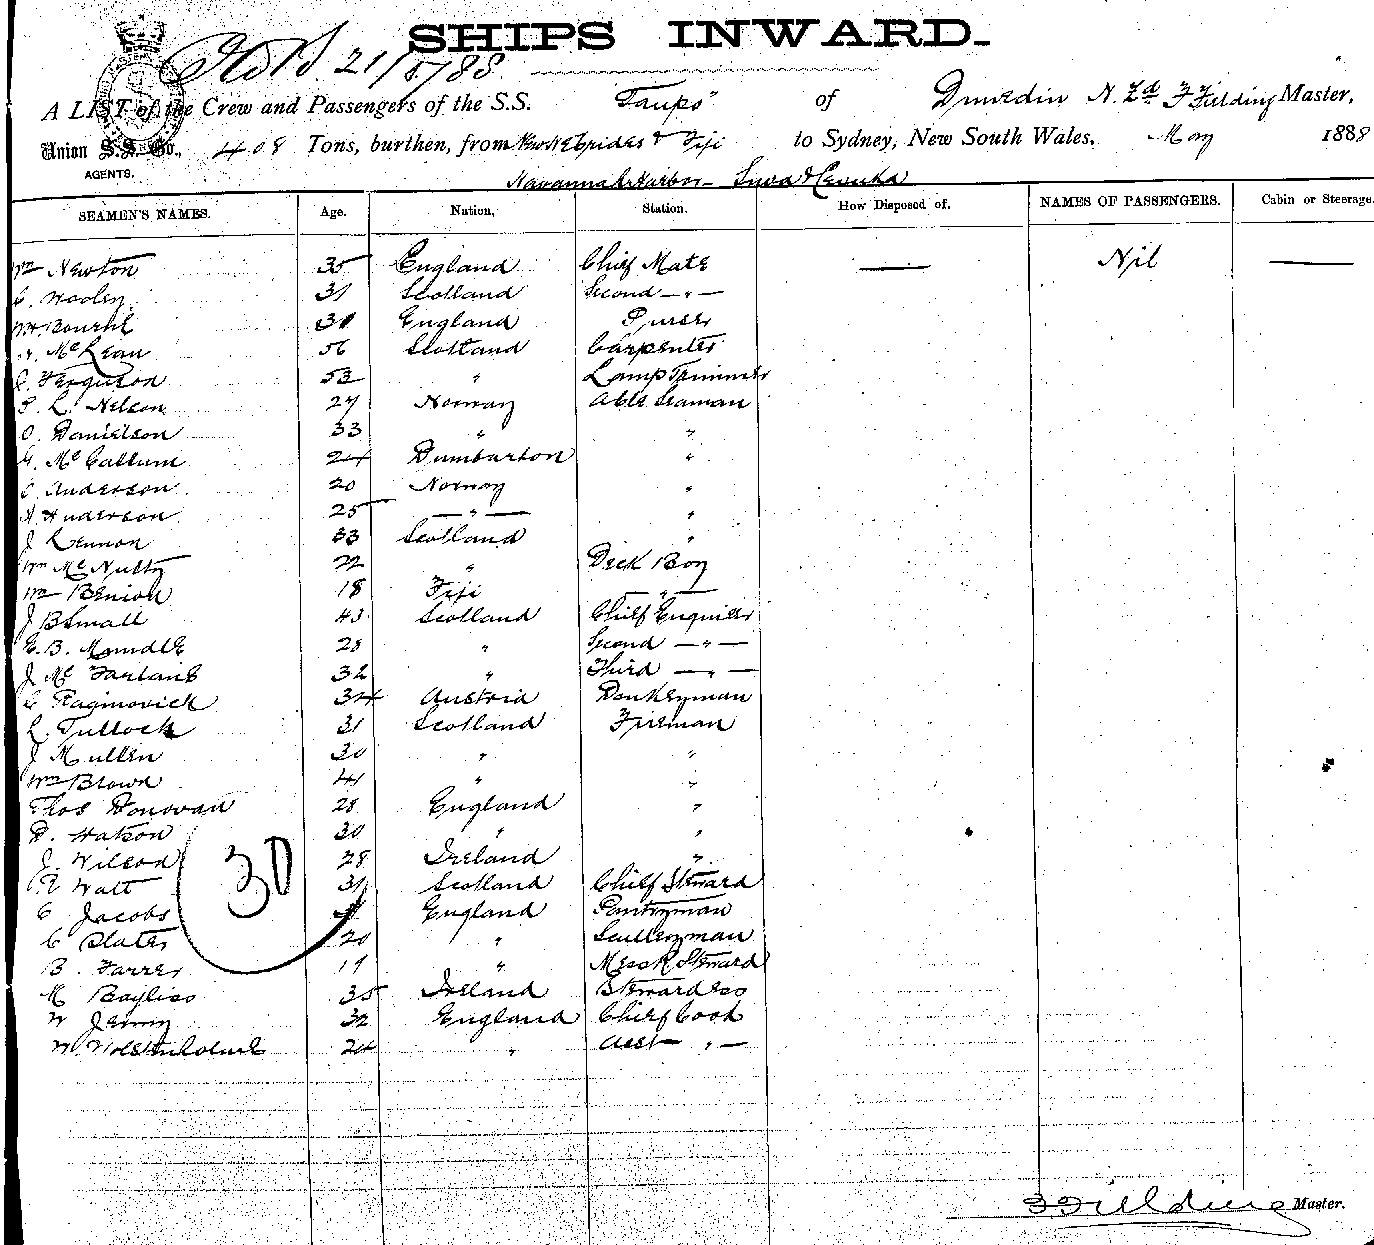 SHIPS INWARD.
21/5/88
A LIST of the Crew and Passengers of the S.S. "Taupo" of Dunedin N. Zd F Fielding Master,
Union S.S. Co., 408 Tons, burthen, from New Hebrides & Fiji to Sydney, New South Wales, May 1888
AGENTS.
Havannah Harbor - Suva & Levuka
SEAMEN'S NAMES. Age. Nation, Station. How Disposed of. NAMES OF PASSENGERS. Cabin or Steerage.
Wm Newton 35 England Chief Mate — Nil —
C. Wooley 31 Scotland Second — " —
Wm. Bourke 31 England Purser
A. McLean 56 Scotland Carpenter
J. Ferguson 53 " Lamp Trimmer
L. Nelson 27 Norway Able Seaman
O. Danielson 33 " "
G. McCallum 24 Dumbarton "
C Anderson 20 Norway "
A Anderson 25 — " — "
J Lennon 33 Scotland "
Wm McNulty 22 " Deck Boy
Wm Benion 18 Fiji — " —
J B Small 43 Scotland Chief Engineer
E. B. Mundle 28 " Second — " —
J McFarlane 32 " Third — " —
C Raginovich 34 Austria Donkeyman
L. Tullock 31 Scotland Fireman
J Mullen 30 " "
Wm Brown 41 " "
Thos Donovan 28 England "
D. Watson 30 " "
J. Wilson 28 Ireland "
R Watt 31 Scotland Chief Steward
C Jacobs England Pantryman
C Slater 20 " Sculleryman
B. Farrer 19 " Mess R. Steward
M Bayliss 35 Ireland Stewardess
W Jenny 32 England Chief Cook
W Wolstenholme 24 " Asst " —
30
F Fielding Master.